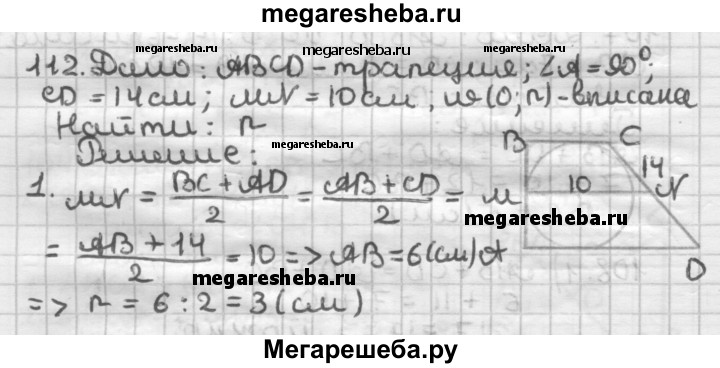 megaresheba.ru
112. Дано: ABCD - трапеция; ∠A = 90°;
megaresheba.ru megaresheba.ru megaresheba.ru
CD = 14 см; MN = 10 см, w(O; r) - вписана
Найти: r
megaresheba.ru
Решение:
B C
14
10
M N
A D
1. MN = (BC + AD)/2 = (AB + CD)/2 =
megaresheba.ru
= (AB + 14)/2 = 10 => AB = 6 (см)
megaresheba.ru
=> r = 6 : 2 = 3 (см)
Мегарешеба.ру